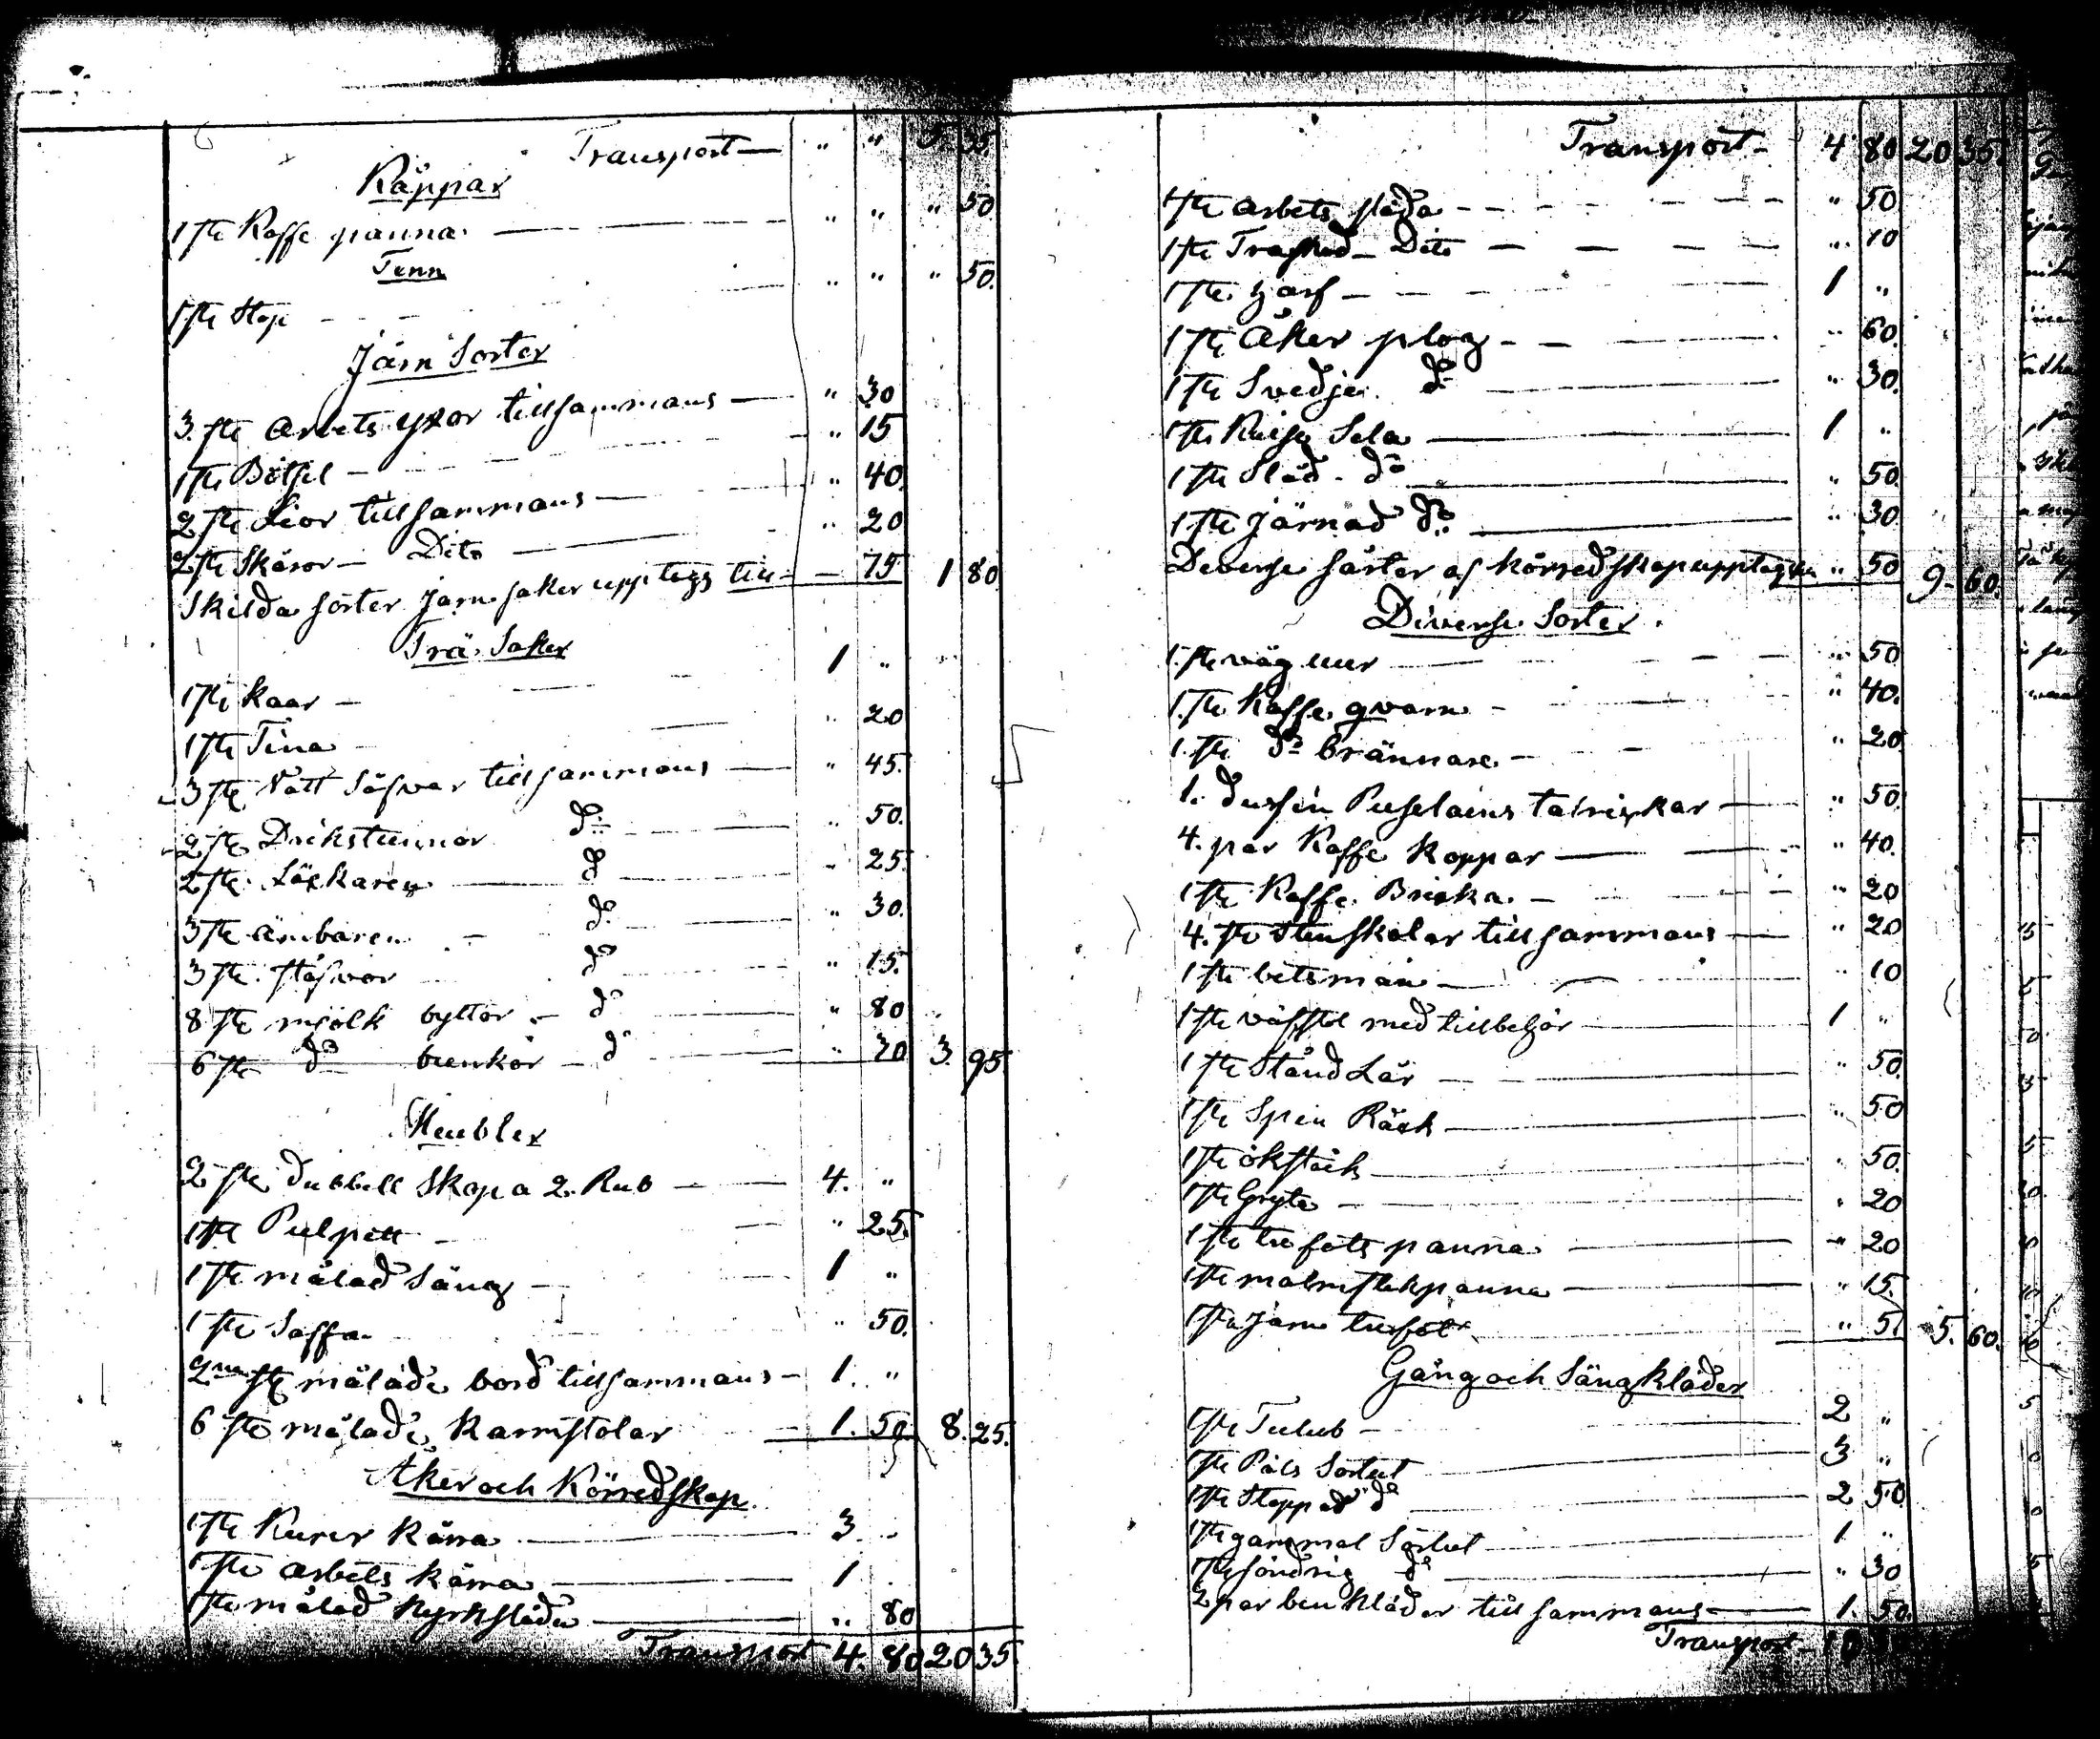 Transport — " " 5. 35.
Kåppar
1 st Kaffe panna — " " " 50
Tenn
1 st Stop - " " " 50.
Järn Sorter
3. st Arbets yxor tillsammans — " 30
1 st Bötfil — " 15
2 st Lior tillsammans — " 40.
2 st Skäror — Dito — " 20
Skilda sorter Järn saker upptogs till — 75 1 80.
Trä Saker
1 st Kaar — 1 "
1 st Tina — " 20
3 st Vatt Såfvar tillsammans — " 45.
2 st Drikstunnor do — " 50.
2 st do — " 25.
3 st Ämbaren — do " 30.
3 st Stäfvor do " 15.
8 st mjölk byttor — do — " 80
6 st do bunkar — do — " 30 3. 95.
Meubler
2 st dubbell Skopa 2. Rub — 4. "
1 st Pulpett — " 25.
1 st målad Säng — 1 "
1 st Soffa — " 50.
2 st målade bord tillsammans — 1. "
6 st målade Karmstolar — 1. 50. 8. 25.
Åker och Körredskap
1 st Kurer Kärra — 3 "
1 st arbets kärra — 1
1 st målad Kyrksläda — " 80
Transport 4. 80 20 35
Transport — 4 80 20 35.
1 st arbets släda — " 50
1 st Dito — " 10
1 st Harf — 1 "
1 st Åker plog — " 60.
1 st Svedje do — " 30.
1 st Reise Sela — 1 "
1 st Släd — do — " 50.
1 st Järnad do — " 30.
Deverse sorter af Körredskap upptogs till " 50 9 - 60.
Diverse Sorter.
1. st väg uur — " 50
1. st Kaffe qvarn — " 40.
1. st do brännare — " 20
1. dussin Puselains talrickar — " 50.
4. par Kaffe Koppar — " 40.
1 st Kaffe Bricka — " 20
4. st Stenskålar tillsammans — " 20
1 st betsman — " 10
1 st väfstol med tillbehör — 1 "
1 st Stånd Lår — " 50.
1 st Spin Råck — " 50
1 st ökstock — " 50.
1 st Gryta — " 20
1 st tre fots panna — " 20
1 st malmstekpanna — " 15.
1 st Järn trefot — " 5. 5. 60.
Gång och Sängkläder
1 st Tulub — 2 "
1 st Päls Sortut — 3 "
1 st Stoppad do — 2 50
1 st gammal Sortut — 1 "
1 st söndrig do — " 30
2 par benkläder tillsammans — 1. 50.
Transport 10